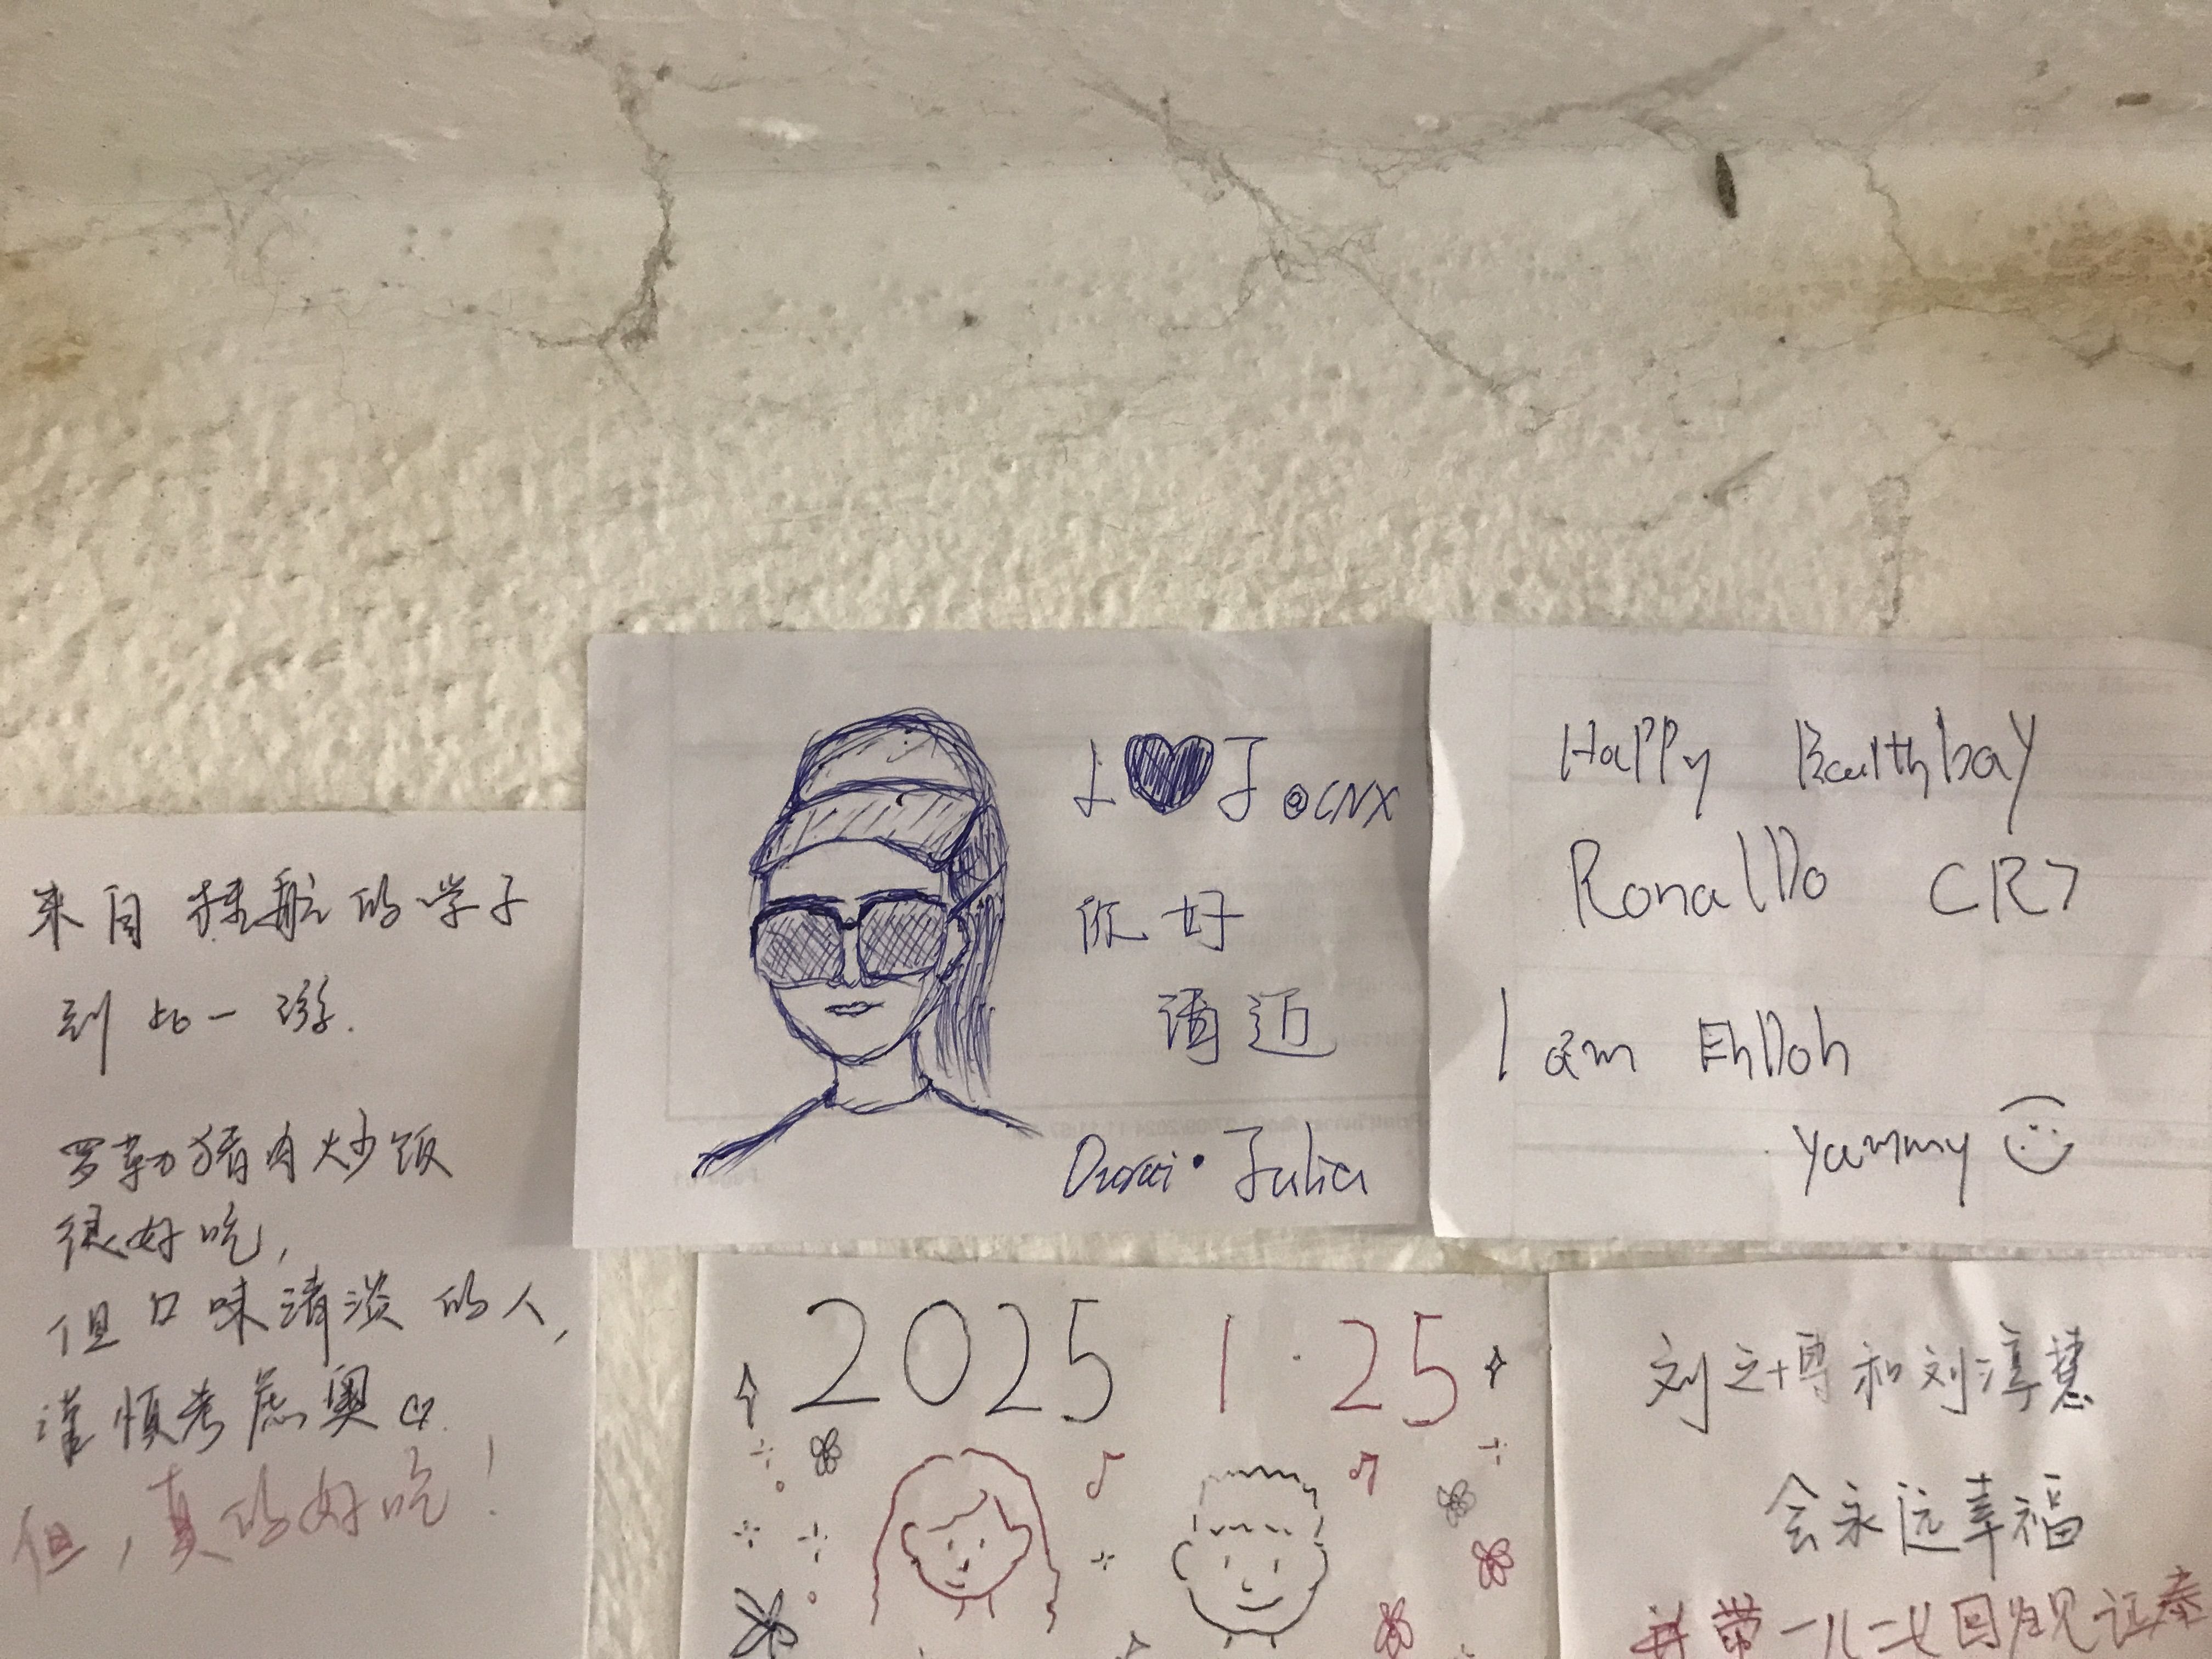 来自 的学子
到此一游.
罗勒猪肉炒饭
很好吃,
但口味清淡的人,
谨慎考虑奥
但,真的好吃!
I J @CNX
你好
清迈
Julia
Happy
RonalDo CR7
I am EhDoh
yummy
2025 1·25
刘之博和刘淳慧
会永远幸福
并带一儿一女回